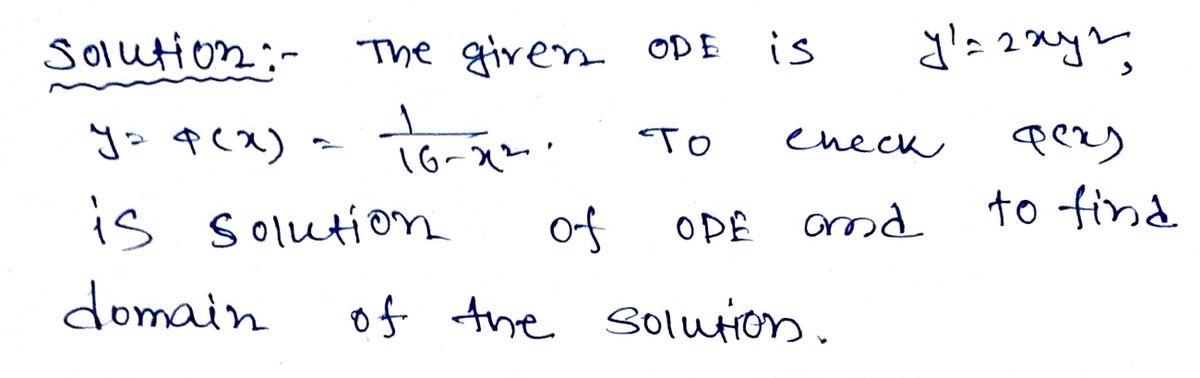 Solution:- The given ODE is y' = 2xy²,
y = φ(x) = 1/(16-x²). To check φ(x)
is solution of ODE and to find
domain of the solution.